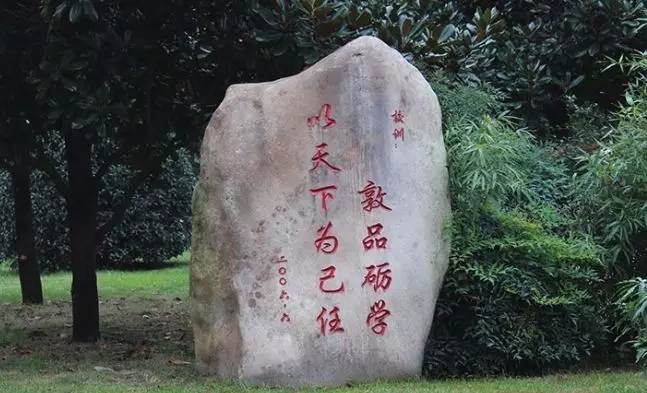 校训：
敦品砺学
以天下为己任
二〇〇六.六